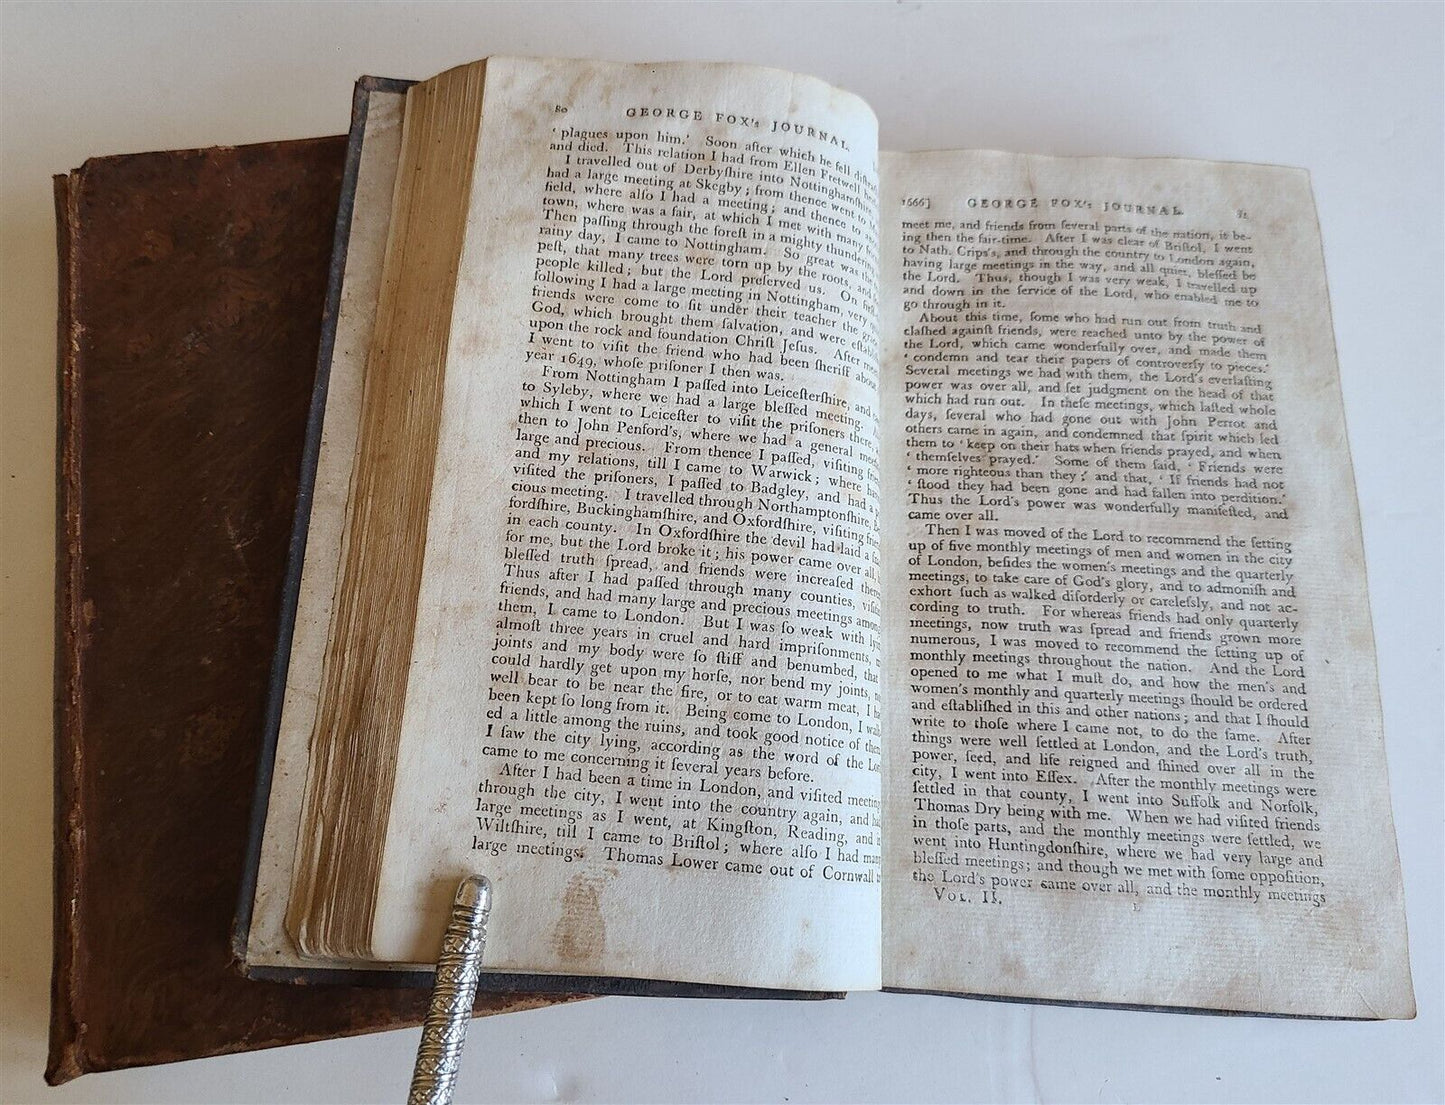 80 GEORGE FOX's JOURNAL.
‘ plagues upon him.’ Soon after which he fell diſtra
and died. This relation I had from Ellen Fretwell
I travelled out of Derbyſhire into Nottinghamſhire,
had a large meeting at Skegby; from thence went to
field, where alſo I had a meeting; and thence to
town, where was a fair, at which I met with many
Then paſſing through the foreſt in a mighty thundering
rainy day, I came to Nottingham. So great was the
peſt, that many trees were torn up by the roots, and
people killed; but the Lord preſerved us. On
following I had a large meeting in Nottingham, very
friends were come to ſit under their teacher the
God, which brought them ſalvation, and were eſtabli
upon the rock and foundation Chriſt Jeſus. After
I went to viſit the friend who had been ſheriff about
year 1649, whoſe priſoner I then was.
From Nottingham I paſſed into Leiceſterſhire, and
to Syleby, where we had a large bleſſed meeting.
which I went to Leiceſter to viſit the priſoners there,
then to John Penford's, where we had a general
large and precious. From thence I paſſed, viſiting
and my relations, till I came to Warwick; where
viſited the priſoners, I paſſed to Badgley, and had a
cious meeting. I travelled through Northamptonſhire,
fordſhire, Buckinghamſhire, and Oxfordſhire, viſiting
in each county. In Oxfordſhire the devil had laid a
for me, but the Lord broke it; his power came over all,
bleſſed truth ſpread, and friends were increaſed
Thus after I had paſſed through many counties,
friends, and had many large and precious meetings
them, I came to London. But I was ſo weak with
almoſt three years in cruel and hard impriſonments,
joints and my body were ſo ſtiff and benumbed, that
could hardly get upon my horſe, nor bend my joints,
well bear to be near the fire, or to eat warm meat, I
been kept ſo long from it. Being come to London, I
ed a little among the ruins, and took good notice of them
I ſaw the city lying, according as the word of the
came to me concerning it ſeveral years before.
After I had been a time in London, and viſited
through the city, I went into the country again, and
large meetings as I went, at Kingſton, Reading, and
Wiltſhire, till I came to Briſtol; where alſo I had
large meetings. Thomas Lower came out of Cornwall
1666] GEORGE FOX's JOURNAL. 81
meet me, and friends from ſeveral parts of the nation, it be-
ing then the fair-time. After I was clear of Briſtol, I went
to Nath. Crips's, and through the country to London again,
having large meetings in the way, and all quiet, bleſſed be
the Lord. Thus, though I was very weak, I travelled up
and down in the ſervice of the Lord, who enabled me to
go through in it.
About this time, ſome who had run out from truth and
claſhed againſt friends, were reached unto by the power of
the Lord, which came wonderfully over, and made them
‘ condemn and tear their papers of controverſy to pieces.’
Several meetings we had with them, the Lord's everlaſting
power was over all, and ſet judgment on the head of that
which had run out. In theſe meetings, which laſted whole
days, ſeveral who had gone out with John Perrot and
others came in again, and condemned that ſpirit which led
them to ‘ keep on their hats when friends prayed, and when
‘ themſelves prayed.’ Some of them ſaid, ‘ Friends were
‘ more righteous than they;’ and that, ‘ If friends had not
‘ ſtood they had been gone and had fallen into perdition.’
Thus the Lord's power was wonderfully manifeſted, and
came over all.
Then I was moved of the Lord to recommend the ſetting
up of five monthly meetings of men and women in the city
of London, beſides the women's meetings and the quarterly
meetings, to take care of God's glory, and to admoniſh and
exhort ſuch as walked diſorderly or careleſsly, and not ac-
cording to truth. For whereas friends had only quarterly
meetings, now truth was ſpread and friends grown more
numerous, I was moved to recommend the ſetting up of
monthly meetings throughout the nation. And the Lord
opened to me what I muſt do, and how the men's and
women's monthly and quarterly meetings ſhould be ordered
and eſtabliſhed in this and other nations; and that I ſhould
write to thoſe where I came not, to do the ſame. After
things were well ſettled at London, and the Lord's truth,
power, ſeed, and life reigned and ſhined over all in the
city, I went into Eſſex. After the monthly meetings were
ſettled in that county, I went into Suffolk and Norfolk,
Thomas Dry being with me. When we had viſited friends
in thoſe parts, and the monthly meetings were ſettled, we
went into Huntingdonſhire, where we had very large and
bleſſed meetings; and though we met with ſome oppoſition,
the Lord's power came over all, and the monthly meetings
VOL. II. L